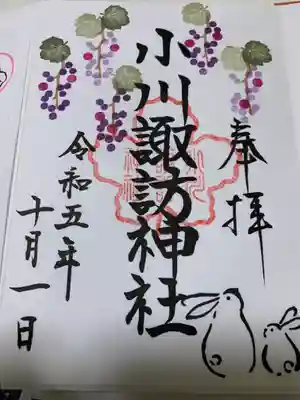 奉拝
小川諏訪神社
令和五年
十月一日